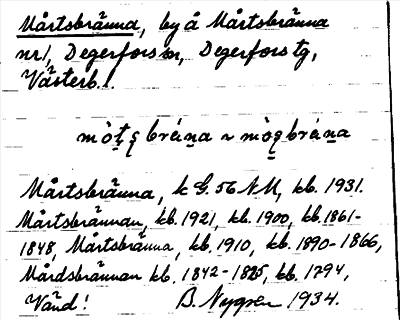 Mårtsbränna, by å Mårtsbränna
nr 1, Degerfors sn, Degerfors tg,
Västerb.
mò bréna ~ mò bréna
Mårtsbränna, k G. 56 NM, kb. 1931.
Mårtsbrännan, kb. 1921, kb. 1900, kb. 1861-
1848, Mårtsbränna, kb. 1910, kb. 1890-1866,
Mårdsbrännan kb. 1842-1825, kb. 1794,
Vänd! B. Nygren 1934.